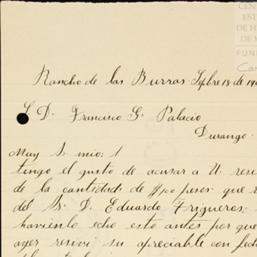 CEN
EST
DE H
DE M
FUN
Ca
Rancho de las Burras Sepbre 18 de 190
S. D. Francisco G. Palacio
Durango.
Muy S. mio:
tengo el gusto de acusar a U. resi
de la cantidad de $100 pesos que
del Sr. D. Eduardo Frigueros;
haverlo echo esto antes por que
ayer resivi su apreciable con fech